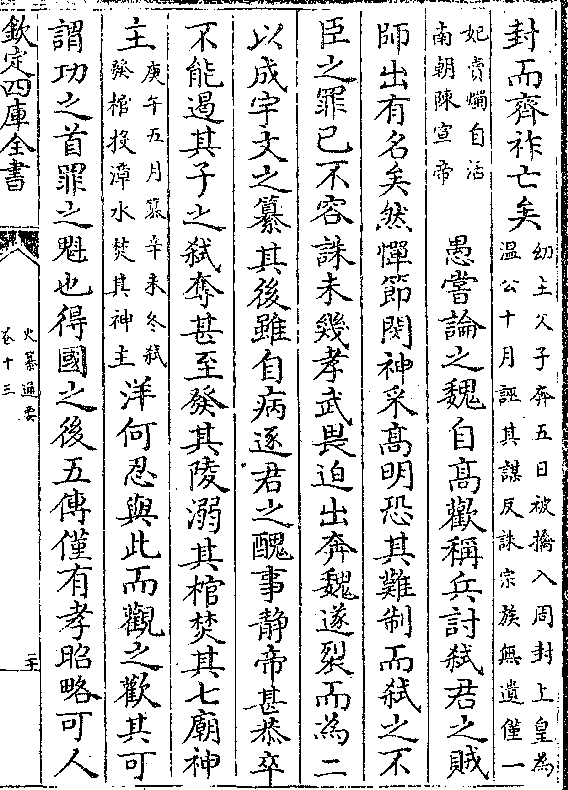 封而齊祚亡矣
幼主父子奔五日被擒入周封上皇為
温公十月誣其謀反誅宗族無遺僅一
妃賣爥自活
南朝陳宣帝
愚嘗論之魏自髙歡稱兵討弑君之賊
師出有名矣然憚節閔神采髙明恐其難制而弑之不
臣之罪已不容誅未幾孝武畏迫出奔魏遂裂而為二
以成宇文之簒其後雖自病逐君之醜事静帝甚恭卒
不能遏其子之弑奪甚至發其陵溺其棺焚其七廟神
主
庚午五月簒辛未冬弑
發棺投漳水焚其神主
洋何忍與此而觀之歡其可
謂功之首罪之魁也得國之後五傳僅有孝昭略可人
欽定四庫全書
史纂通要
卷十三
二十